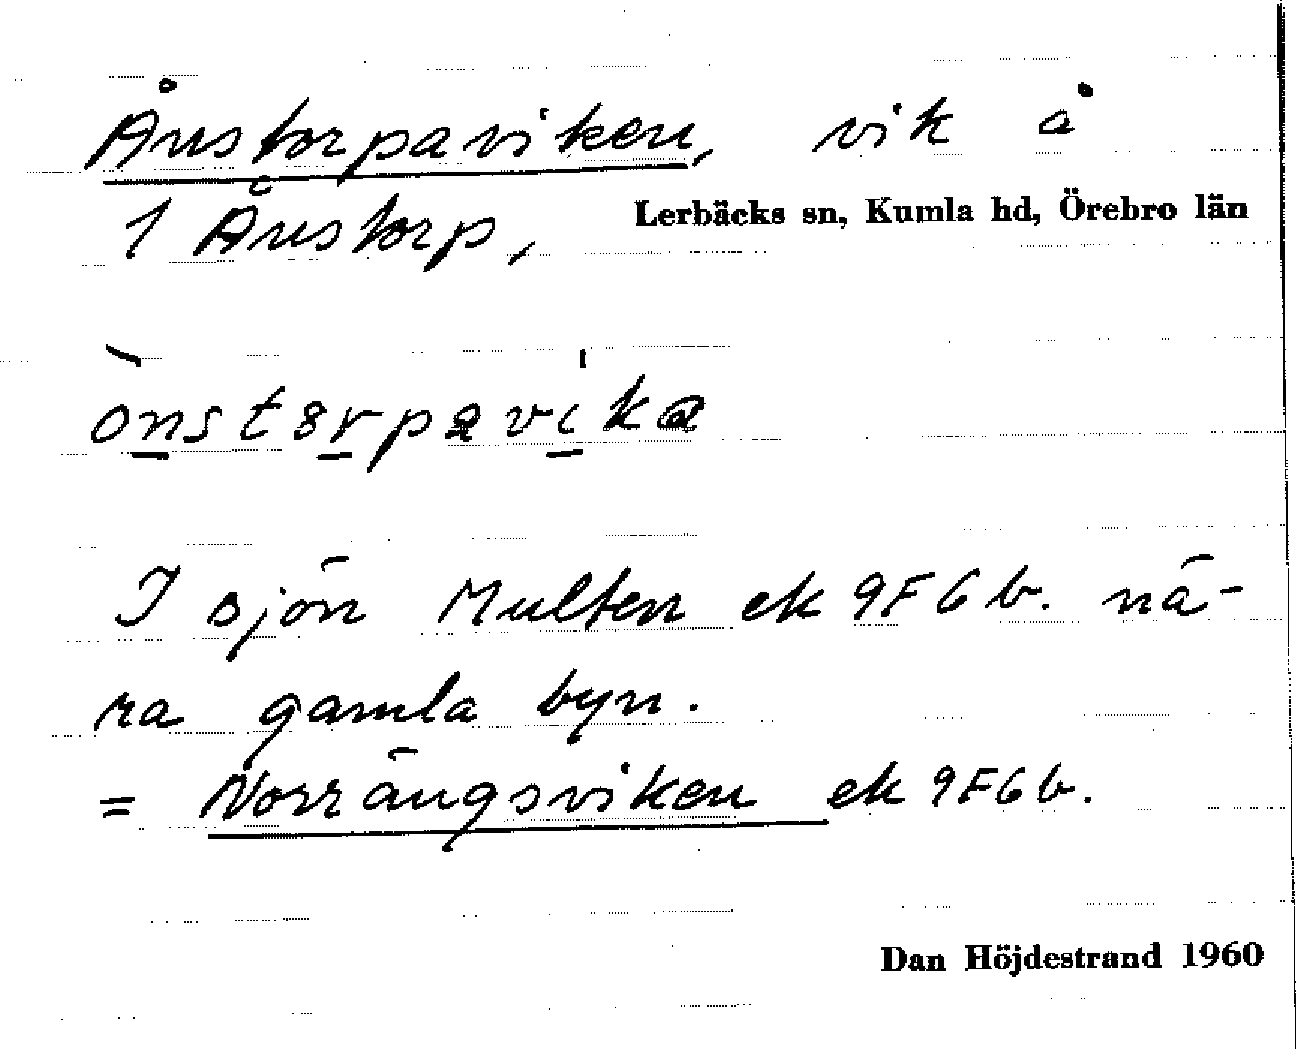 Ånstorpaviken, vik å
1 Ånstorp,
Lerbäcks sn, Kumla hd, Örebro län
I sjön Multen ek 9F6b. nä-
ra gamla byn.
= Norrängsviken ek 9F6b.
Dan Höjdestrand 1960